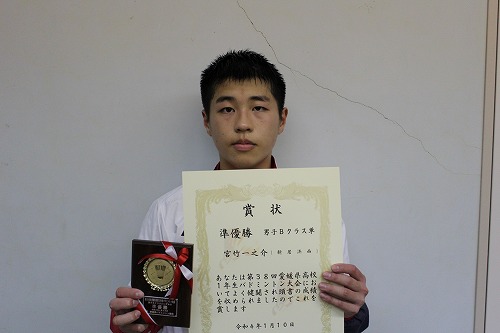 賞状
準優勝 男子Bクラス単
宮竹一之介(新居浜西)
あなたは第38回愛媛県高校
1年生バドミントン大会にお
いてよく健闘され頭書の成績
を収められましたのでこれを
賞します
令和6年1月10日